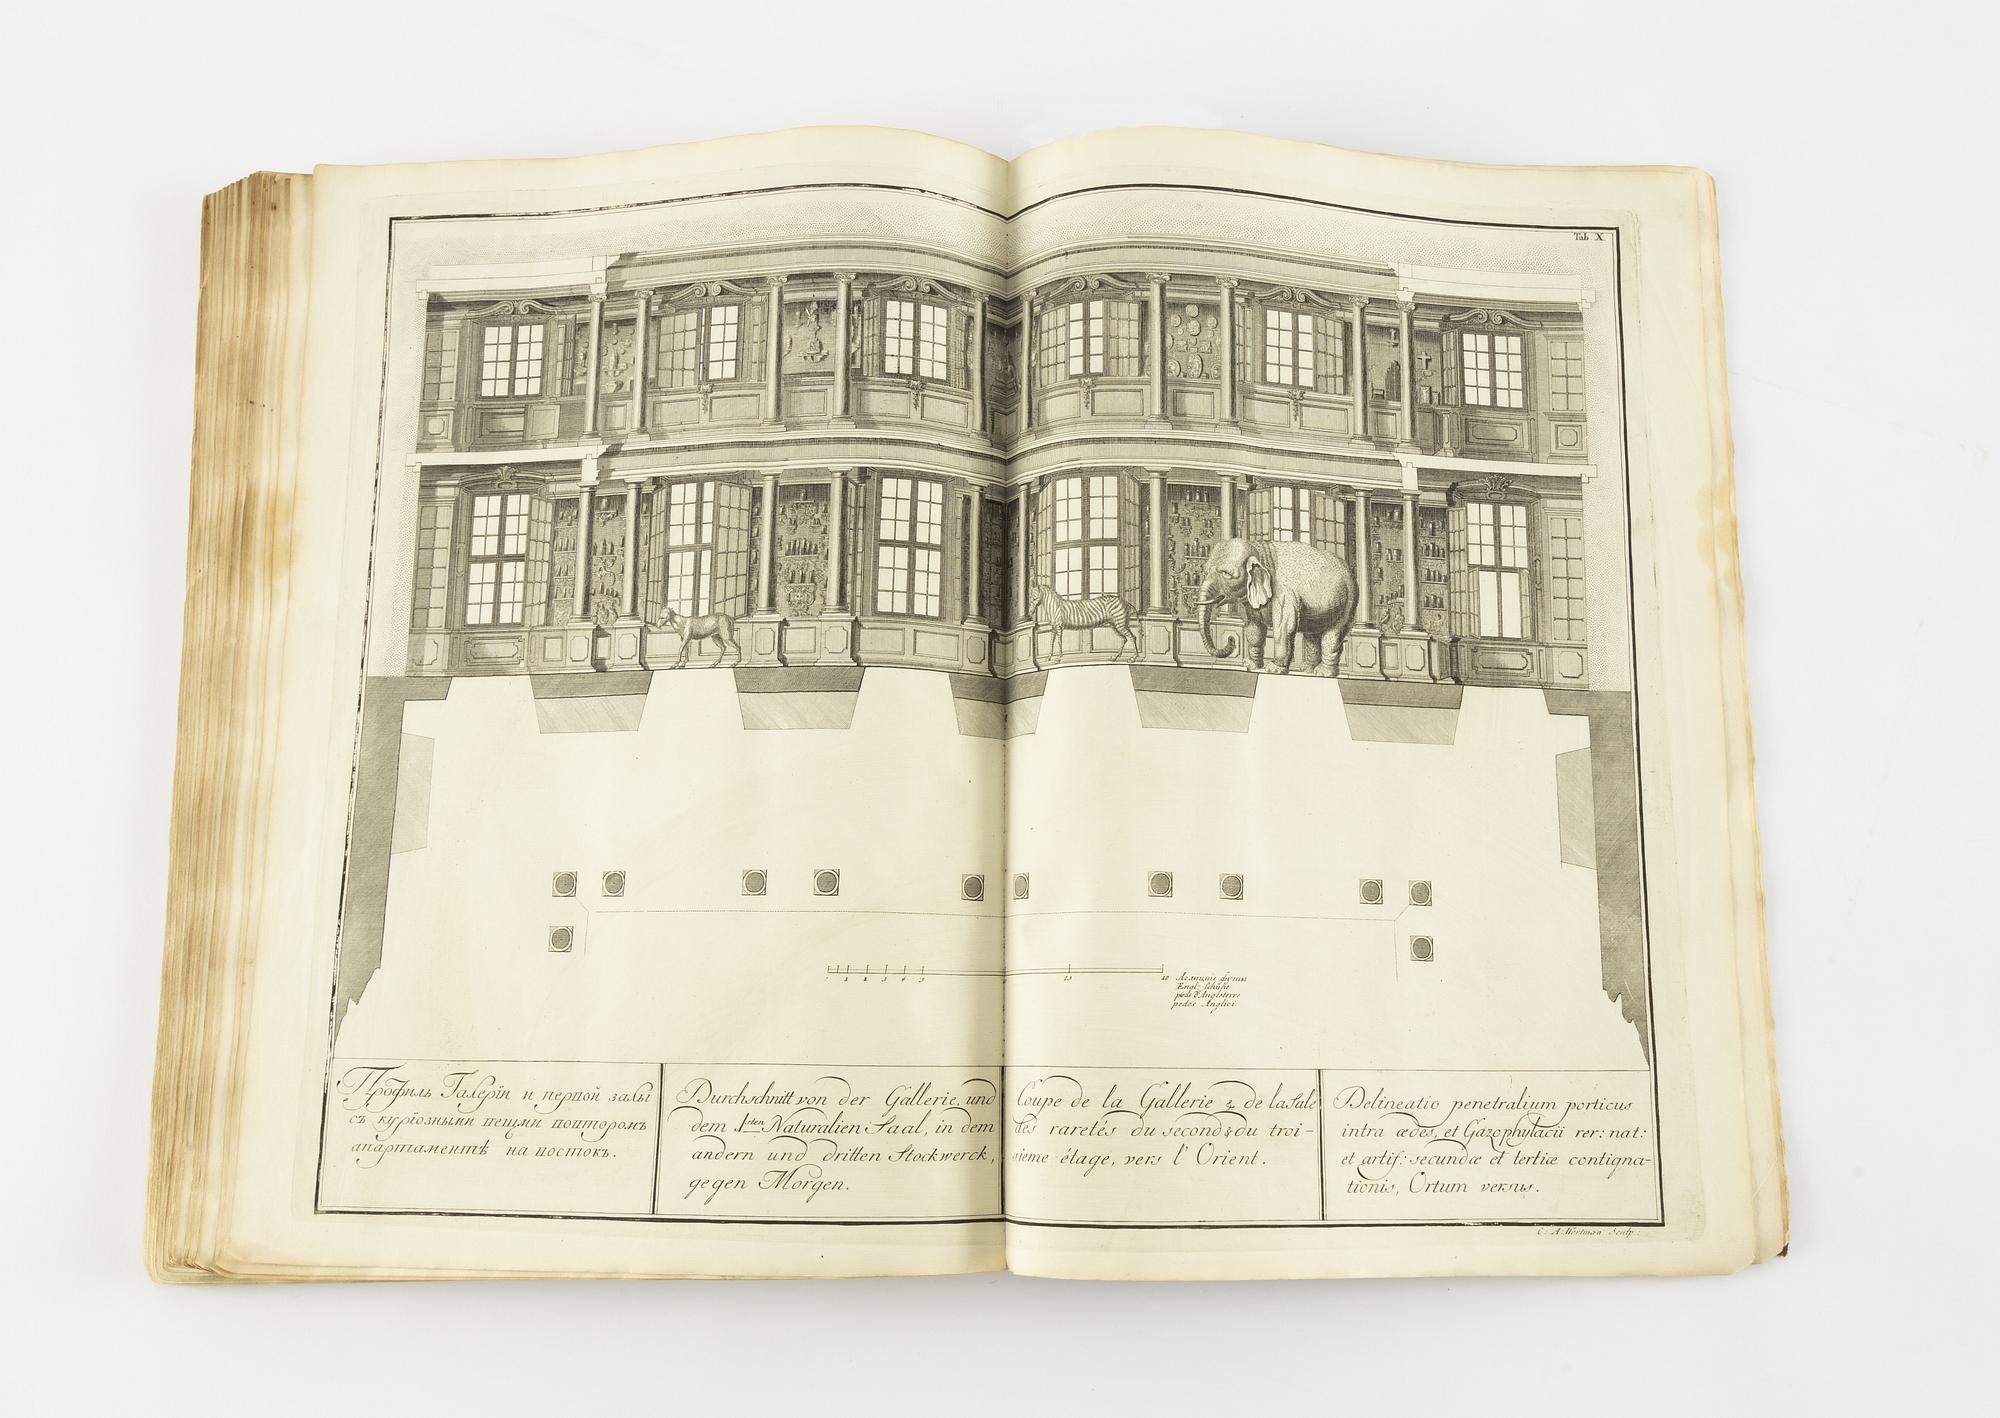 Tab. X.
1 2 3 4 5 15 20
Лондинїе футы
Engl: schühe
pieds d'Angleterre
pedes Anglici
Профиль Галерїи и первой залы
съ курїозными вещми вовторомъ
апартаментѣ на востокъ.
Durchschnitt von der Gallerie, und
dem 1sten Naturalien Saal, in dem
andern und dritten Stockwerck,
gegen Morgen.
Coupe de la Gallerie & de la Sale
des raretés du second & du troi-
sieme étage, vers l'Orient.
Delineatio penetralium porticus
intra ædes, et Gazophylacii rer: nat:
et artif: secundæ et tertiæ contigna-
tionis, Ortum versus.
C: A: Wortman Sculp: